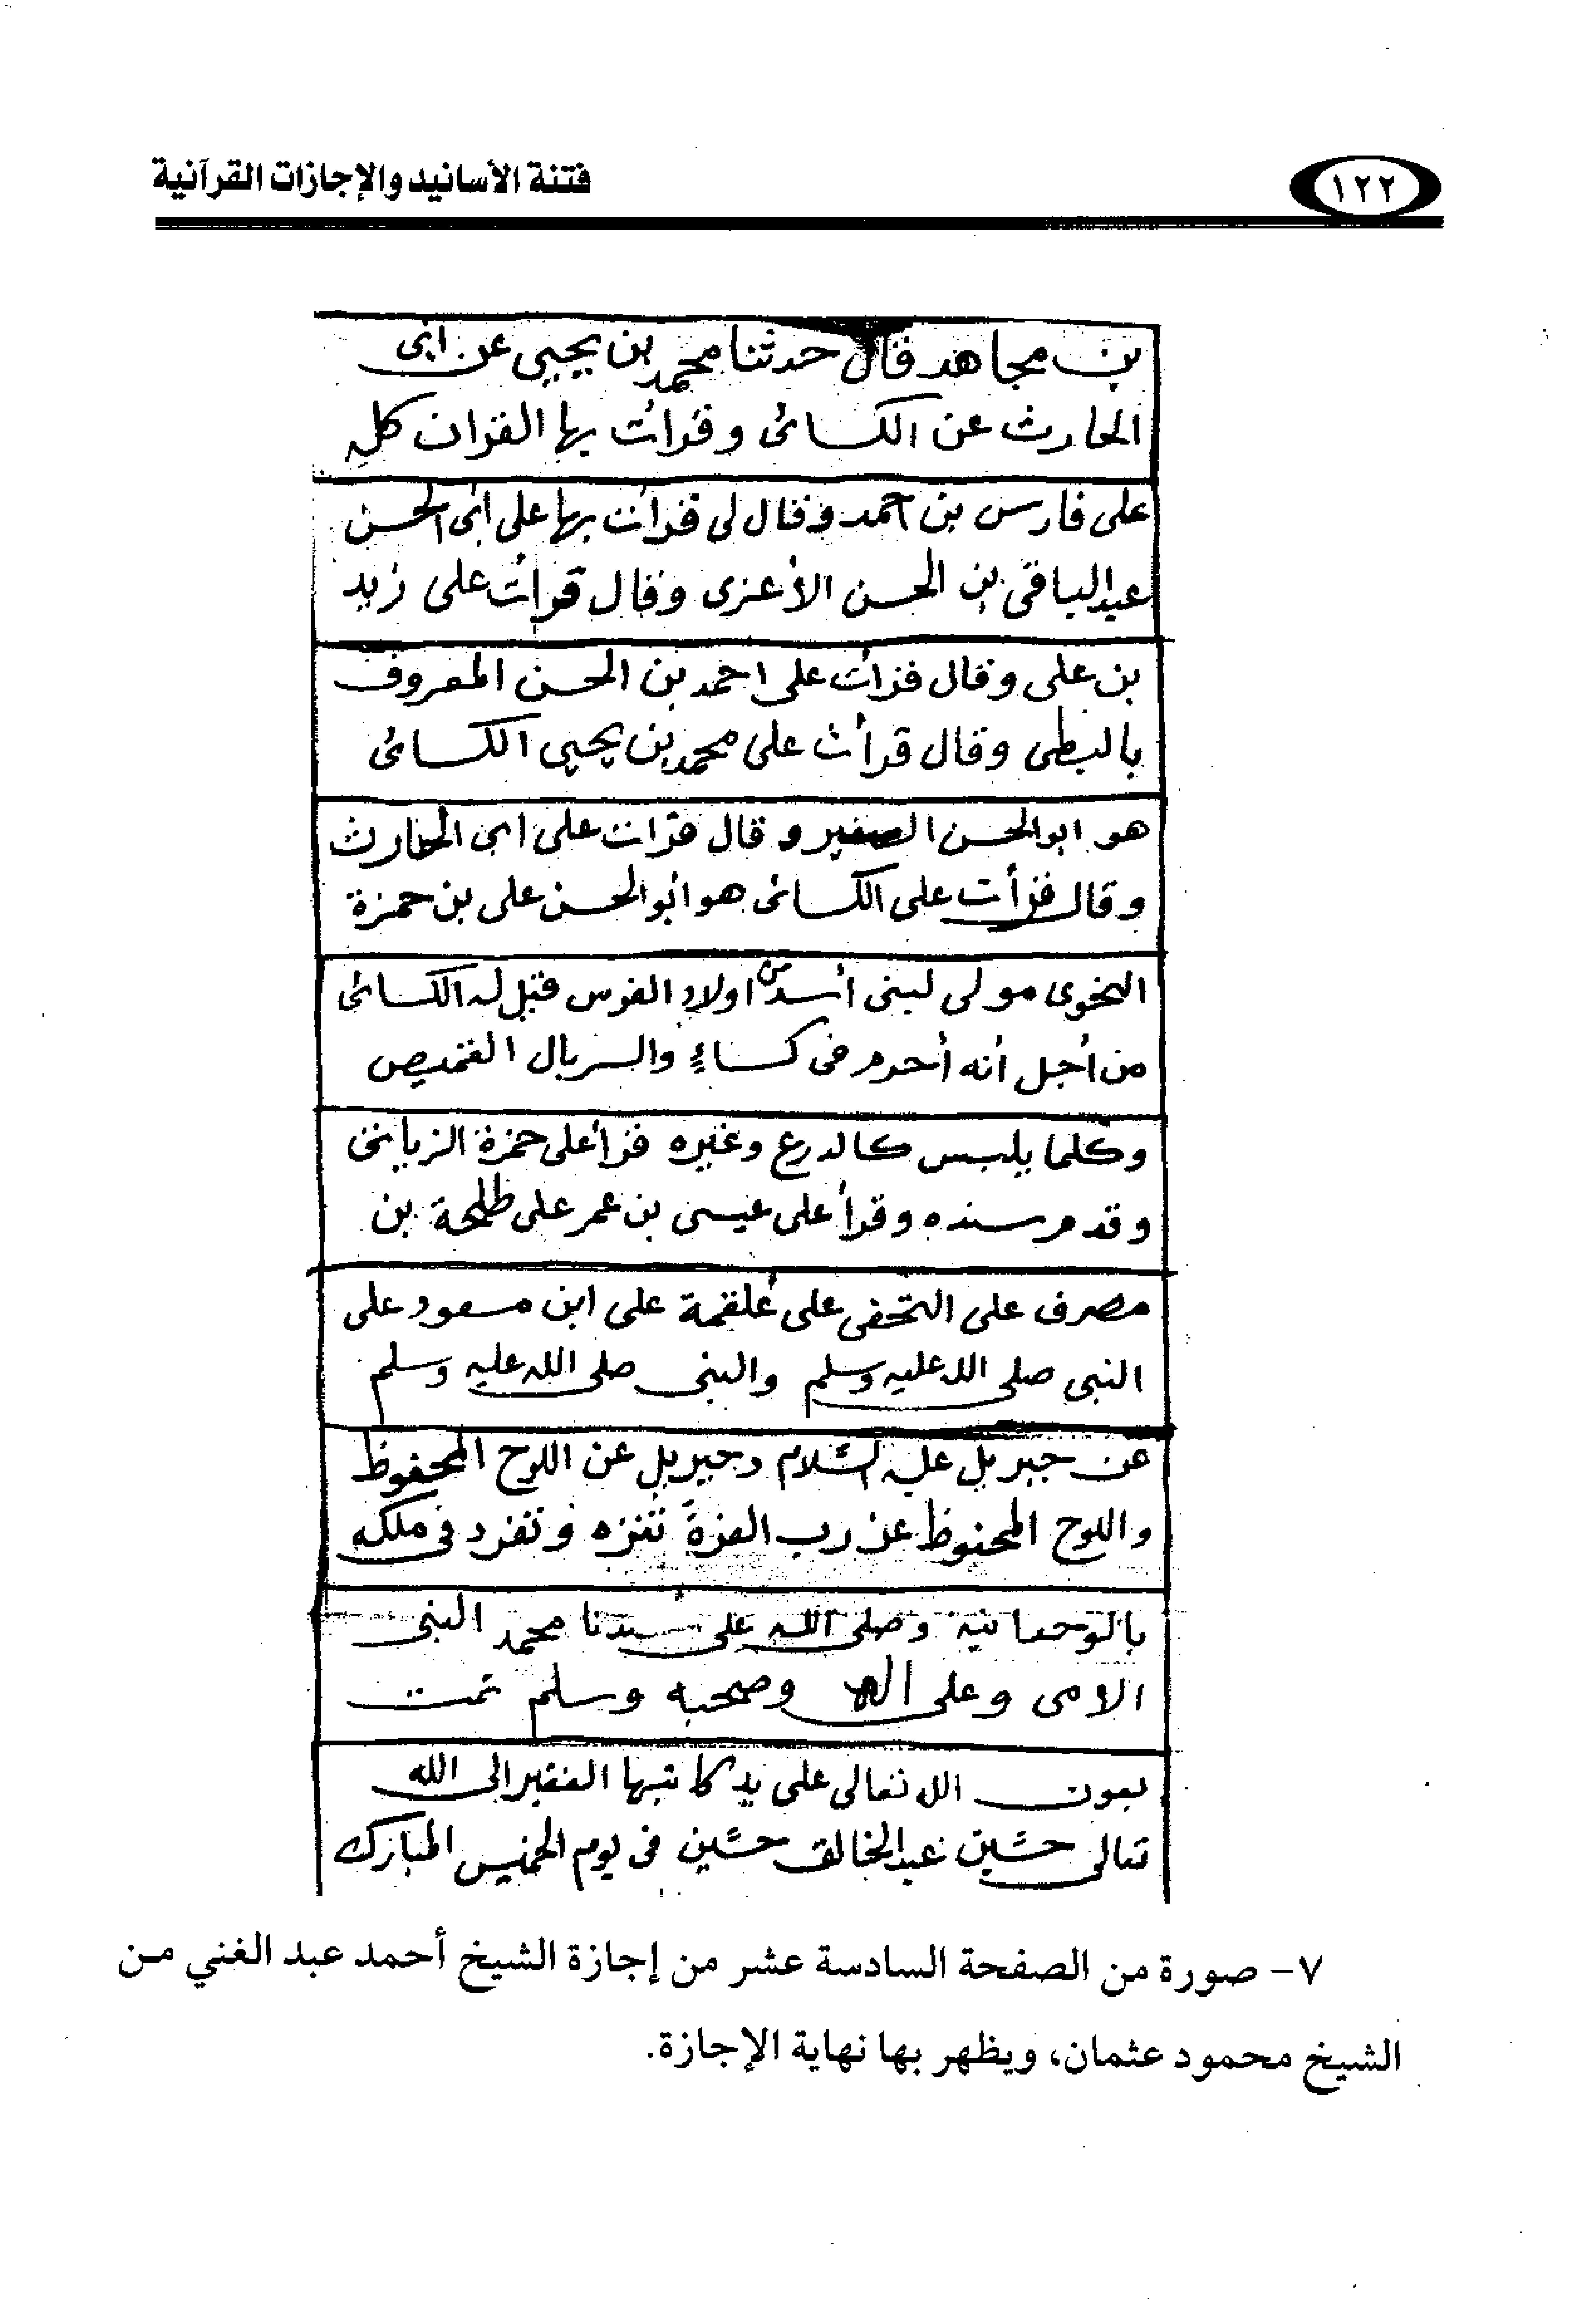 ١٢٢
فتنة الأسانيد والإجازات القرآنية
بن مجاهد قال حدثنا محمد بن يحيى عن ابى
الحارث عن الكسائى وقرأت بها القران كله
على فارس بن احمد وقال لى قرأت بها على ابى الحسن
عبدالباقى بن الحسن الأعزى وقال قرأت على زيد
بن على وقال قرأت على احمد بن الحسن المعروف
بالبطى وقال قرأت على محمد بن يحيى الكسائى
هو ابوالحسن الصغير وقال قرات على ابى الحارث
وقال قرأت على الكسائى هو ابوالحسن على بن حمزة
النخوى مولى لبنى أسد من اولاد الفرس قيل له الكسائى
من أجل أنه أحرم فى كساءٍ والسربال القميص
وكلما يلبس كالدرع وغيره قرأ على حمزة الزيات
وقد مر سنده وقرأ على عيسى بن عمر على طلحة بن
مصرف على النخعى على علقمة على ابن مسعود على
النبى صلى الله عليه وسلم والنبى صلى الله عليه وسلم
عن جبريل عليه السلام وجبريل عن اللوح المحفوظ
واللوح المحفوظ عن رب العزة تنزه وتفرد فى ملكه
بالوحدانية وصلى الله على سيدنا محمد النبى
الامى وعلى اله وصحبه وسلم تمت
بعون الله تعالى على يد كاتبها الفقير الى الله
تعالى حسين عبدالخالق حسين فى يوم الخميس المبارك
٧- صورة من الصفحة السادسة عشر من إجازة الشيخ أحمد عبد الغني من
الشيخ محمود عثمان، ويظهر بها نهاية الإجازة.